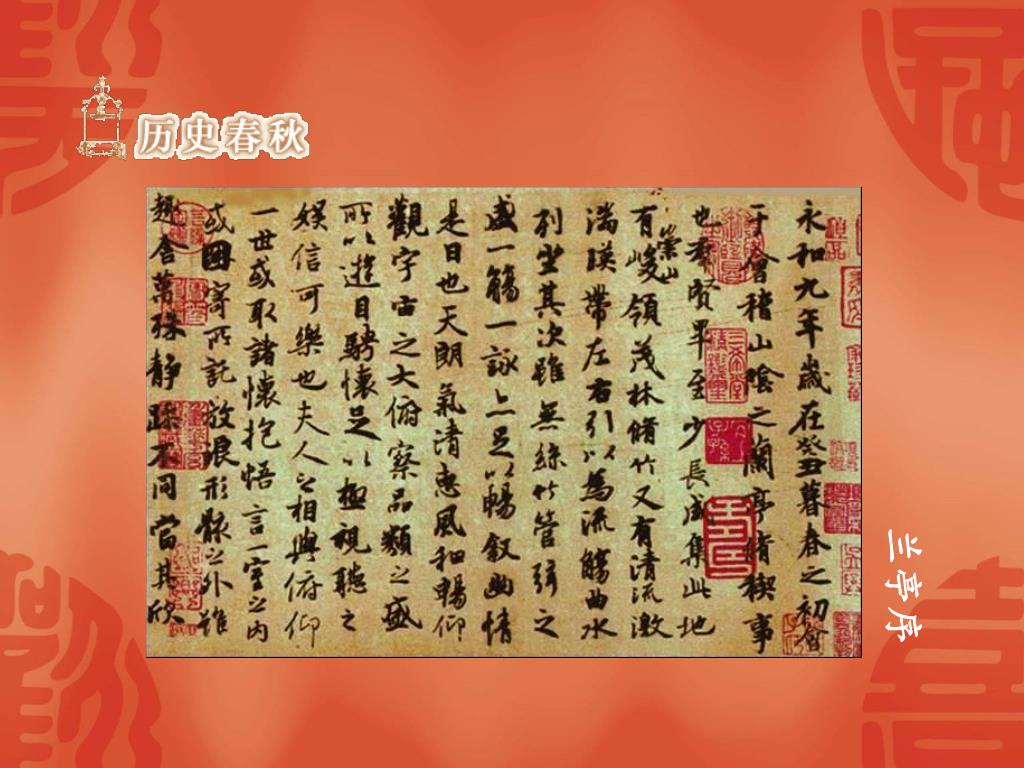 历史春秋
永和九年歲在癸丑暮春之初會
于會稽山陰之蘭亭脩稧事
也羣賢畢至少長咸集此地
有崇山峻領茂林脩竹又有清流激
湍暎帶左右引以為流觴曲水
列坐其次雖無絲竹管弦之
盛一觴一詠亦足以暢叙幽情
是日也天朗氣清惠風和暢仰
觀宇宙之大俯察品類之盛
所以遊目騁懷足以極視聽之
娛信可樂也夫人之相與俯仰
一世或取諸懷抱悟言一室之内
或因寄所託放浪形骸之外雖
趣舍萬殊静躁不同當其欣
兰亭序